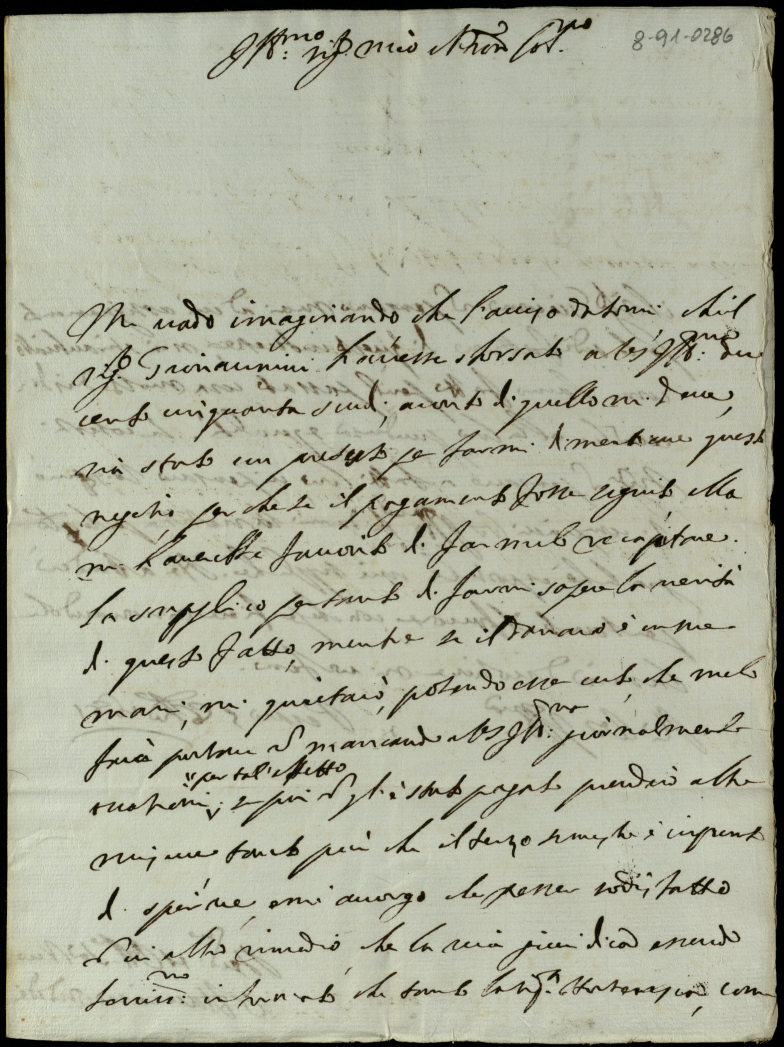 8-91-0286
Ill:mo sig.r mio e Pron Col.mo
Mi vado imaginando che l'aviso datomi ch'il
sig.r Giovannini havesse sborsato a VS Ill:ma du
cento cinquanta scudi, a conto di quello mi deve,
sia stato un pretesto per farmi dimenticare questo
negotio, perche se il pagamento fosse seguito, ella
mi haverebbe favorito di farmelo recapitare.
La supplico per tanto di farmi sapere la verità
di questo fatto, mentre se il danaro è in sue
mani, mi quietarò, potendo esser certo, che me lo
farà portare non mancando a VS Ill:ma giornalmente
occasioni per tal'effetto, se poi non gl'è stato pagato prenderò altre
misure tanto più che il terzo semestre è in punto
di spirare, e mi accorgo che per esser sodisfatto
non vi è altro rimedio, che la via giuridica essendo
benis:mo informato che tanto la sig.ra, come